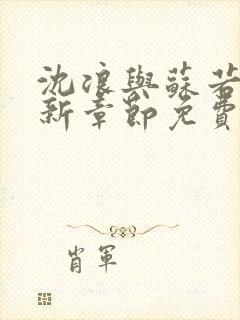 沈浪與蘇若
新章節免費
肖軍